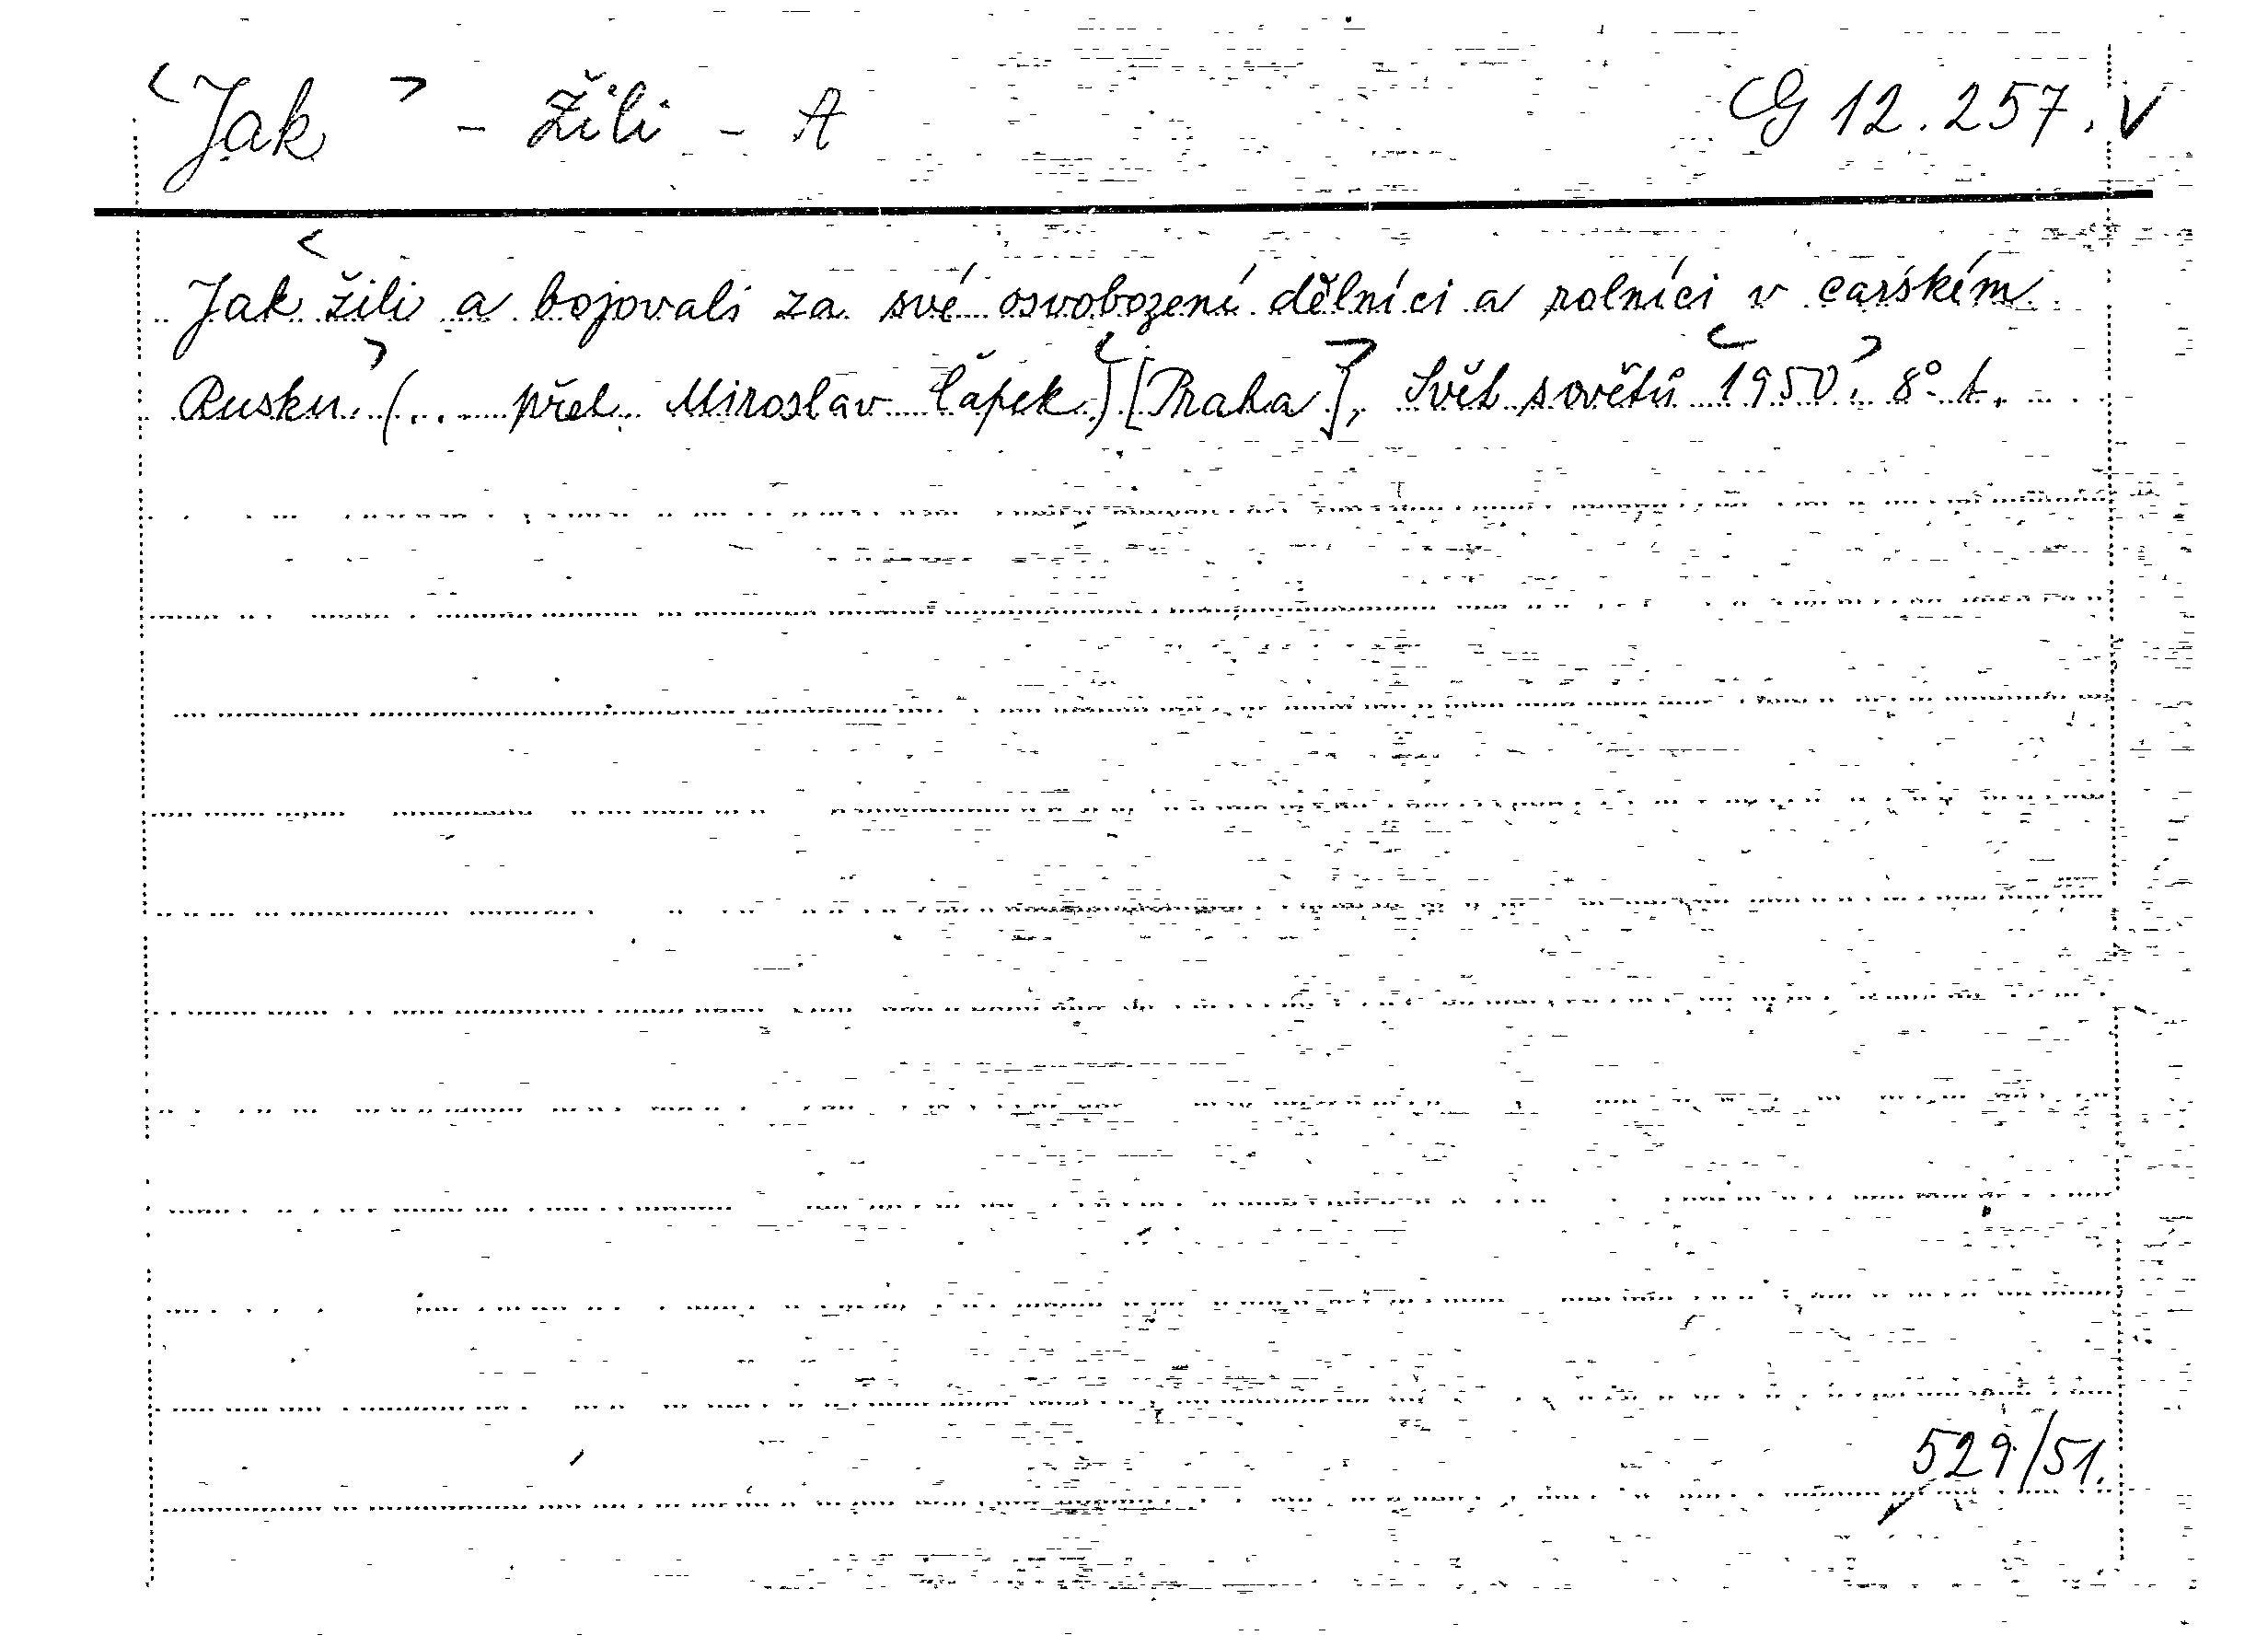 <Jak> - Žili - A CG 12.257. V
Jak <žili a bojovali za své osvobození dělníci a rolníci v carském
Rusku.> (.. přel. Miroslav Čápek.) <[Praha]>, Svět sovětů <1950>. 8° t.
529/51.